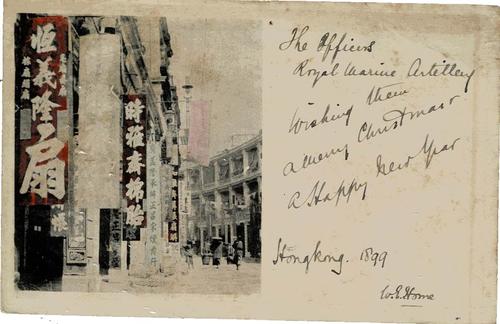 恆義隆扇
The Officers
Royal Marine Artillery
Wishing them
a Merry Christmas &
A Happy New Year
Hongkong. 1899
W.E. Home